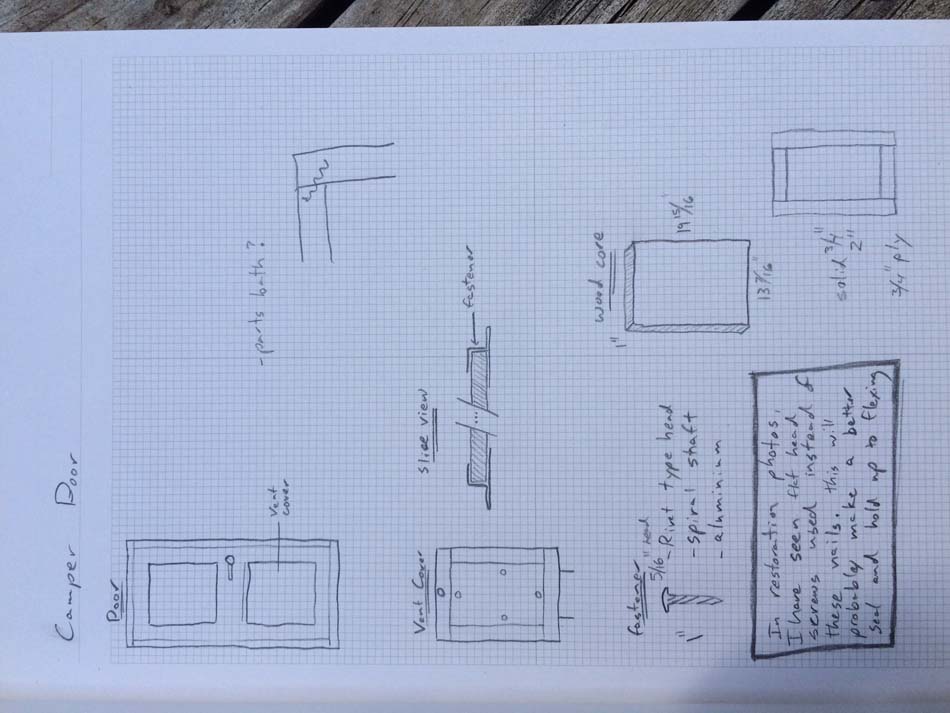 Camper Door
Door
Vent
cover
- parts bath?
Vent Cover
Slide view
fastener
fastener
1"
5/16" head
- Rivet type head
- spiral shaft
- aluminium
wood core
1"
19 15/16
13 7/16"
In restoration photos,
I have seen flat head
screws used instead of
these nails. this will
probably make a better
seal and hold up to flexing
solid 3/4"
2"
3/4" ply